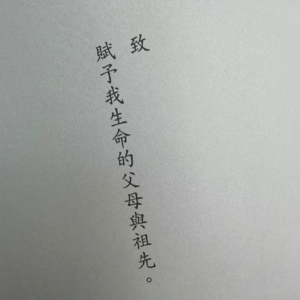 致
賦予我生命的父母與祖先。